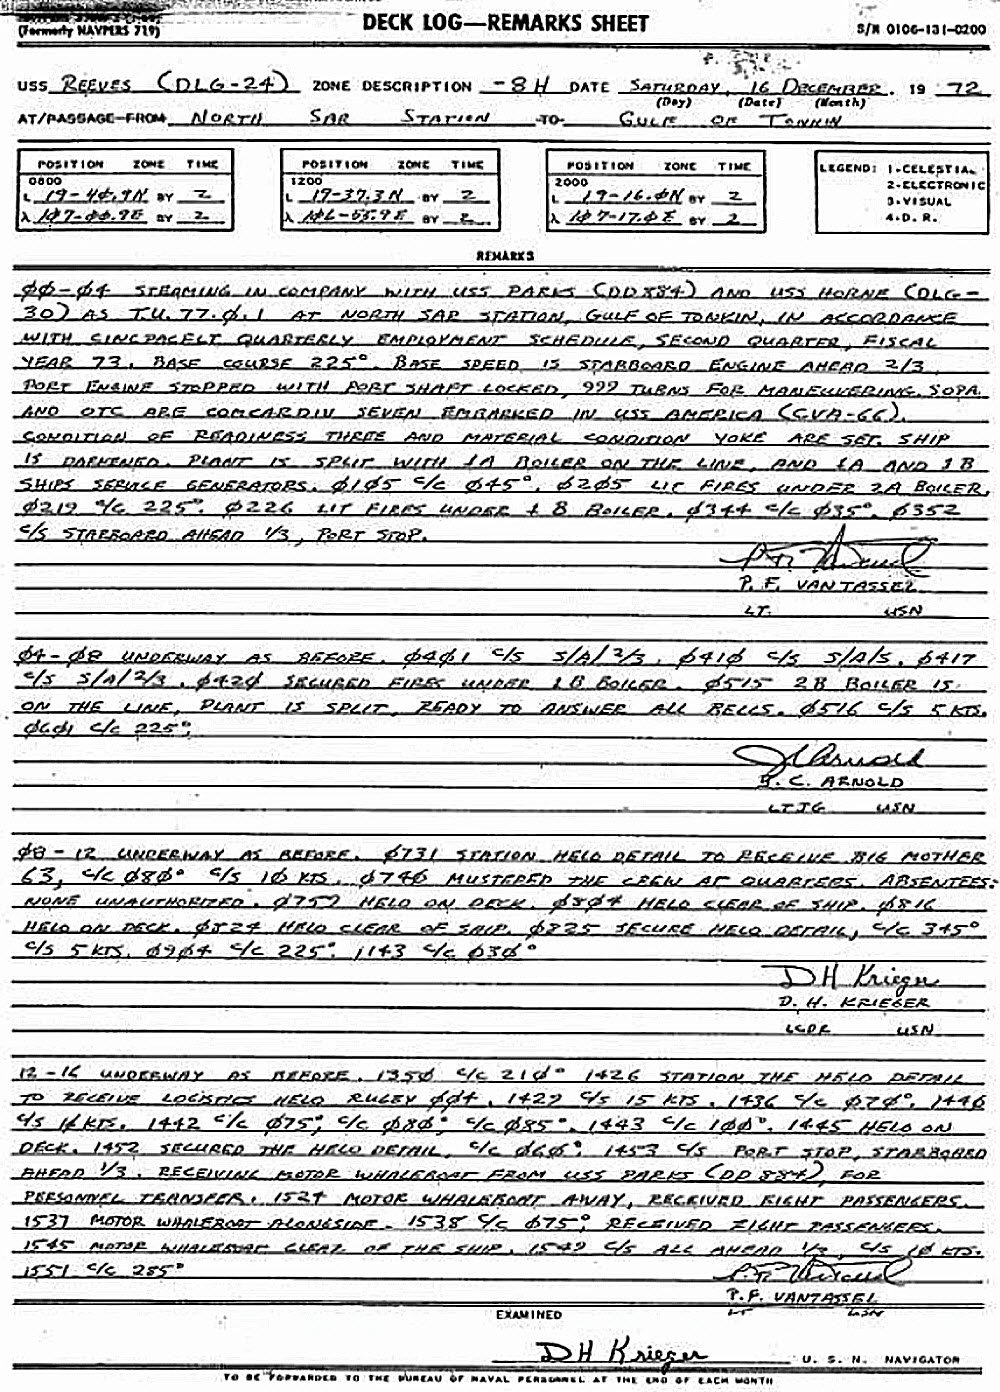 (Formerly NAVPERS 719)
DECK LOG—REMARKS SHEET
S/N 0106-131-0200
USS REEVES (DLG-24) ZONE DESCRIPTION -8H DATE SATURDAY, 16 DECEMBER, 19 72
(Day) (Date) (Month)
AT/PASSAGE FROM NORTH SAR STATION TO GULF OF TONKIN
POSITION ZONE TIME
0800
L 19-40.9N BY 2
λ 107-00.9E BY 2
POSITION ZONE TIME
1200
L 19-37.3N BY 2
λ 106-55.9E BY 2
POSITION ZONE TIME
2000
L 19-16.0N BY 2
λ 107-17.0E BY 2
LEGEND: 1-CELESTIAL
2-ELECTRONIC
3-VISUAL
4-D. R.
REMARKS
00-04 STEAMING IN COMPANY WITH USS PARKS (DD884) AND USS HORNE (DLG-
30) AS T.U. 77.0.1 AT NORTH SAR STATION, GULF OF TONKIN, IN ACCORDANCE
WITH CINCPACFLT QUARTERLY EMPLOYMENT SCHEDULE, SECOND QUARTER, FISCAL
YEAR 73. BASE COURSE 225°. BASE SPEED IS STARBOARD ENGINE AHEAD 2/3,
PORT ENGINE STOPPED WITH PORT SHAFT LOCKED, 999 TURNS FOR MANEUVERING. SOPA
AND OTC ARE COMCARDIV SEVEN EMBARKED IN USS AMERICA (CVA-66).
CONDITION OF READINESS THREE AND MATERIAL CONDITION YOKE ARE SET. SHIP
IS DARKENED. PLANT IS SPLIT WITH 1A BOILER ON THE LINE, AND 1A AND 1B
SHIPS SERVICE GENERATORS. 0105 C/C 045°. 0205 LIT FIRES UNDER 2A BOILER.
0219 C/C 225°. 0226 LIT FIRES UNDER 1B BOILER. 0344 C/C 035°. 0352
C/S STARBOARD AHEAD 1/3, PORT STOP.
P. F. VANTASSEL
LT. USN
04-08 UNDERWAY AS BEFORE. 0401 C/S S/A/2/3. 0410 C/S S/A/S. 0417
C/S S/A/2/3. 0420 SECURED FIRES UNDER 1B BOILER. 0515 2B BOILER IS
ON THE LINE, PLANT IS SPLIT, READY TO ANSWER ALL BELLS. 0516 C/S 5 KTS.
0601 C/C 225°.
C. ARNOLD
LTJG USN
08-12 UNDERWAY AS BEFORE. 0731 STATION HELO DETAIL TO RECEIVE BIG MOTHER
63, C/C 080° C/S 10 KTS. 0740 MUSTERED THE CREW AT QUARTERS. ABSENTEES:
NONE UNAUTHORIZED. 0759 HELO ON DECK. 0804 HELO CLEAR OF SHIP. 0816
HELO ON DECK. 0824 HELO CLEAR OF SHIP. 0825 SECURE HELO DETAIL, C/C 345°
C/S 5 KTS. 0904 C/C 225°. 1143 C/C 030°
DH Krieger
D. H. KRIEGER
LCDR USN
12-16 UNDERWAY AS BEFORE. 1350 C/C 210° 1426 STATION THE HELO DETAIL
TO RECEIVE LOGISTICS HELO RULEY 004. 1429 C/S 15 KTS. 1436 C/C 070°. 1440
C/S 10 KTS. 1442 C/C 075°, C/C 080°, C/C 085°. 1443 C/C 100°. 1445 HELO ON
DECK. 1452 SECURED THE HELO DETAIL, C/C 060°. 1453 C/S PORT STOP, STARBOARD
AHEAD 1/3. RECEIVING MOTOR WHALEBOAT FROM USS PARKS (DD 884), FOR
PERSONNEL TRANSFER. 1527 MOTOR WHALEBOAT AWAY, RECEIVED EIGHT PASSENGERS.
1537 MOTOR WHALEBOAT ALONGSIDE. 1538 C/C 075°, RECEIVED EIGHT PASSENGERS.
1545 MOTOR WHALEBOAT CLEAR OF THE SHIP. 1549 C/S ALL AHEAD 1/3, C/S 10 KTS.
1551 C/C 285°
P. F. VANTASSEL
LT USN
EXAMINED
DH Krieger U. S. N. NAVIGATOR
TO BE FORWARDED TO THE BUREAU OF NAVAL PERSONNEL AT THE END OF EACH MONTH